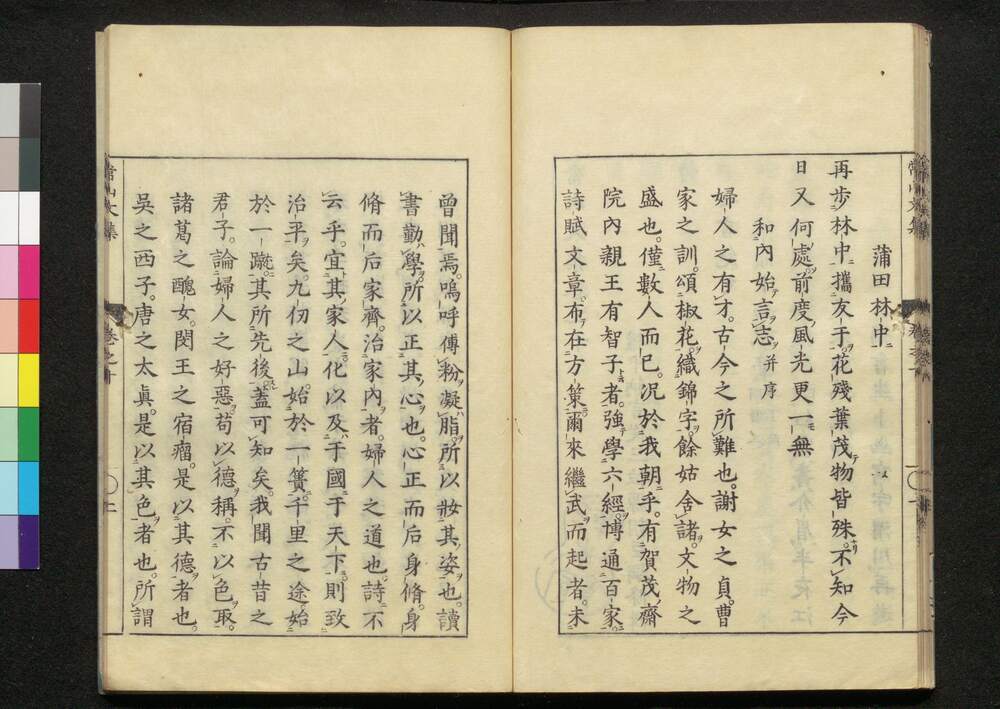 蒲田林中
再歩林中攜友于花殘葉茂物皆殊不知今
日又何處前度風光更一無
和內始言志并序
婦人之有才古今之所難也謝女之貞曹
家之訓頌椒花織錦字餘姑舍諸文物之
盛也僅數人而已況於我朝乎有賀茂齋
院內親王有智子者強學六經博通百家
詩賦文章布在方策爾來繼武而起者未
曾聞焉嗚呼傳粉凝脂所以妝其姿也讀
書勤學所以正其心也心正而后身脩身
脩而后家齊治家內者婦人之道也詩不
云乎宜其家人化以及于國于天下則致
治平矣九仞之山始於一簣千里之途始
於一蹴其所先後蓋可知矣我聞古昔之
君子論婦人之好惡苟以德稱不以色取
諸葛之醜女閔王之宿瘤是以其德者也
吳之西子唐之太眞是以其色者也所謂
常山文集
卷之十